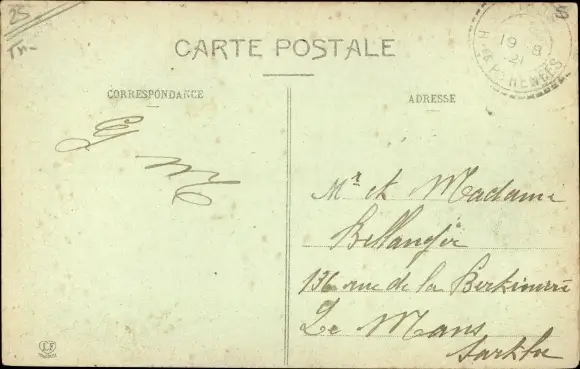 25
CARTE POSTALE
19-8
21
Htes PYRENEES
CORRESPONDANCE
ADRESSE
G M
Mr et Madame
Bellanger
136 rue de la
Le Mans
Sarthe